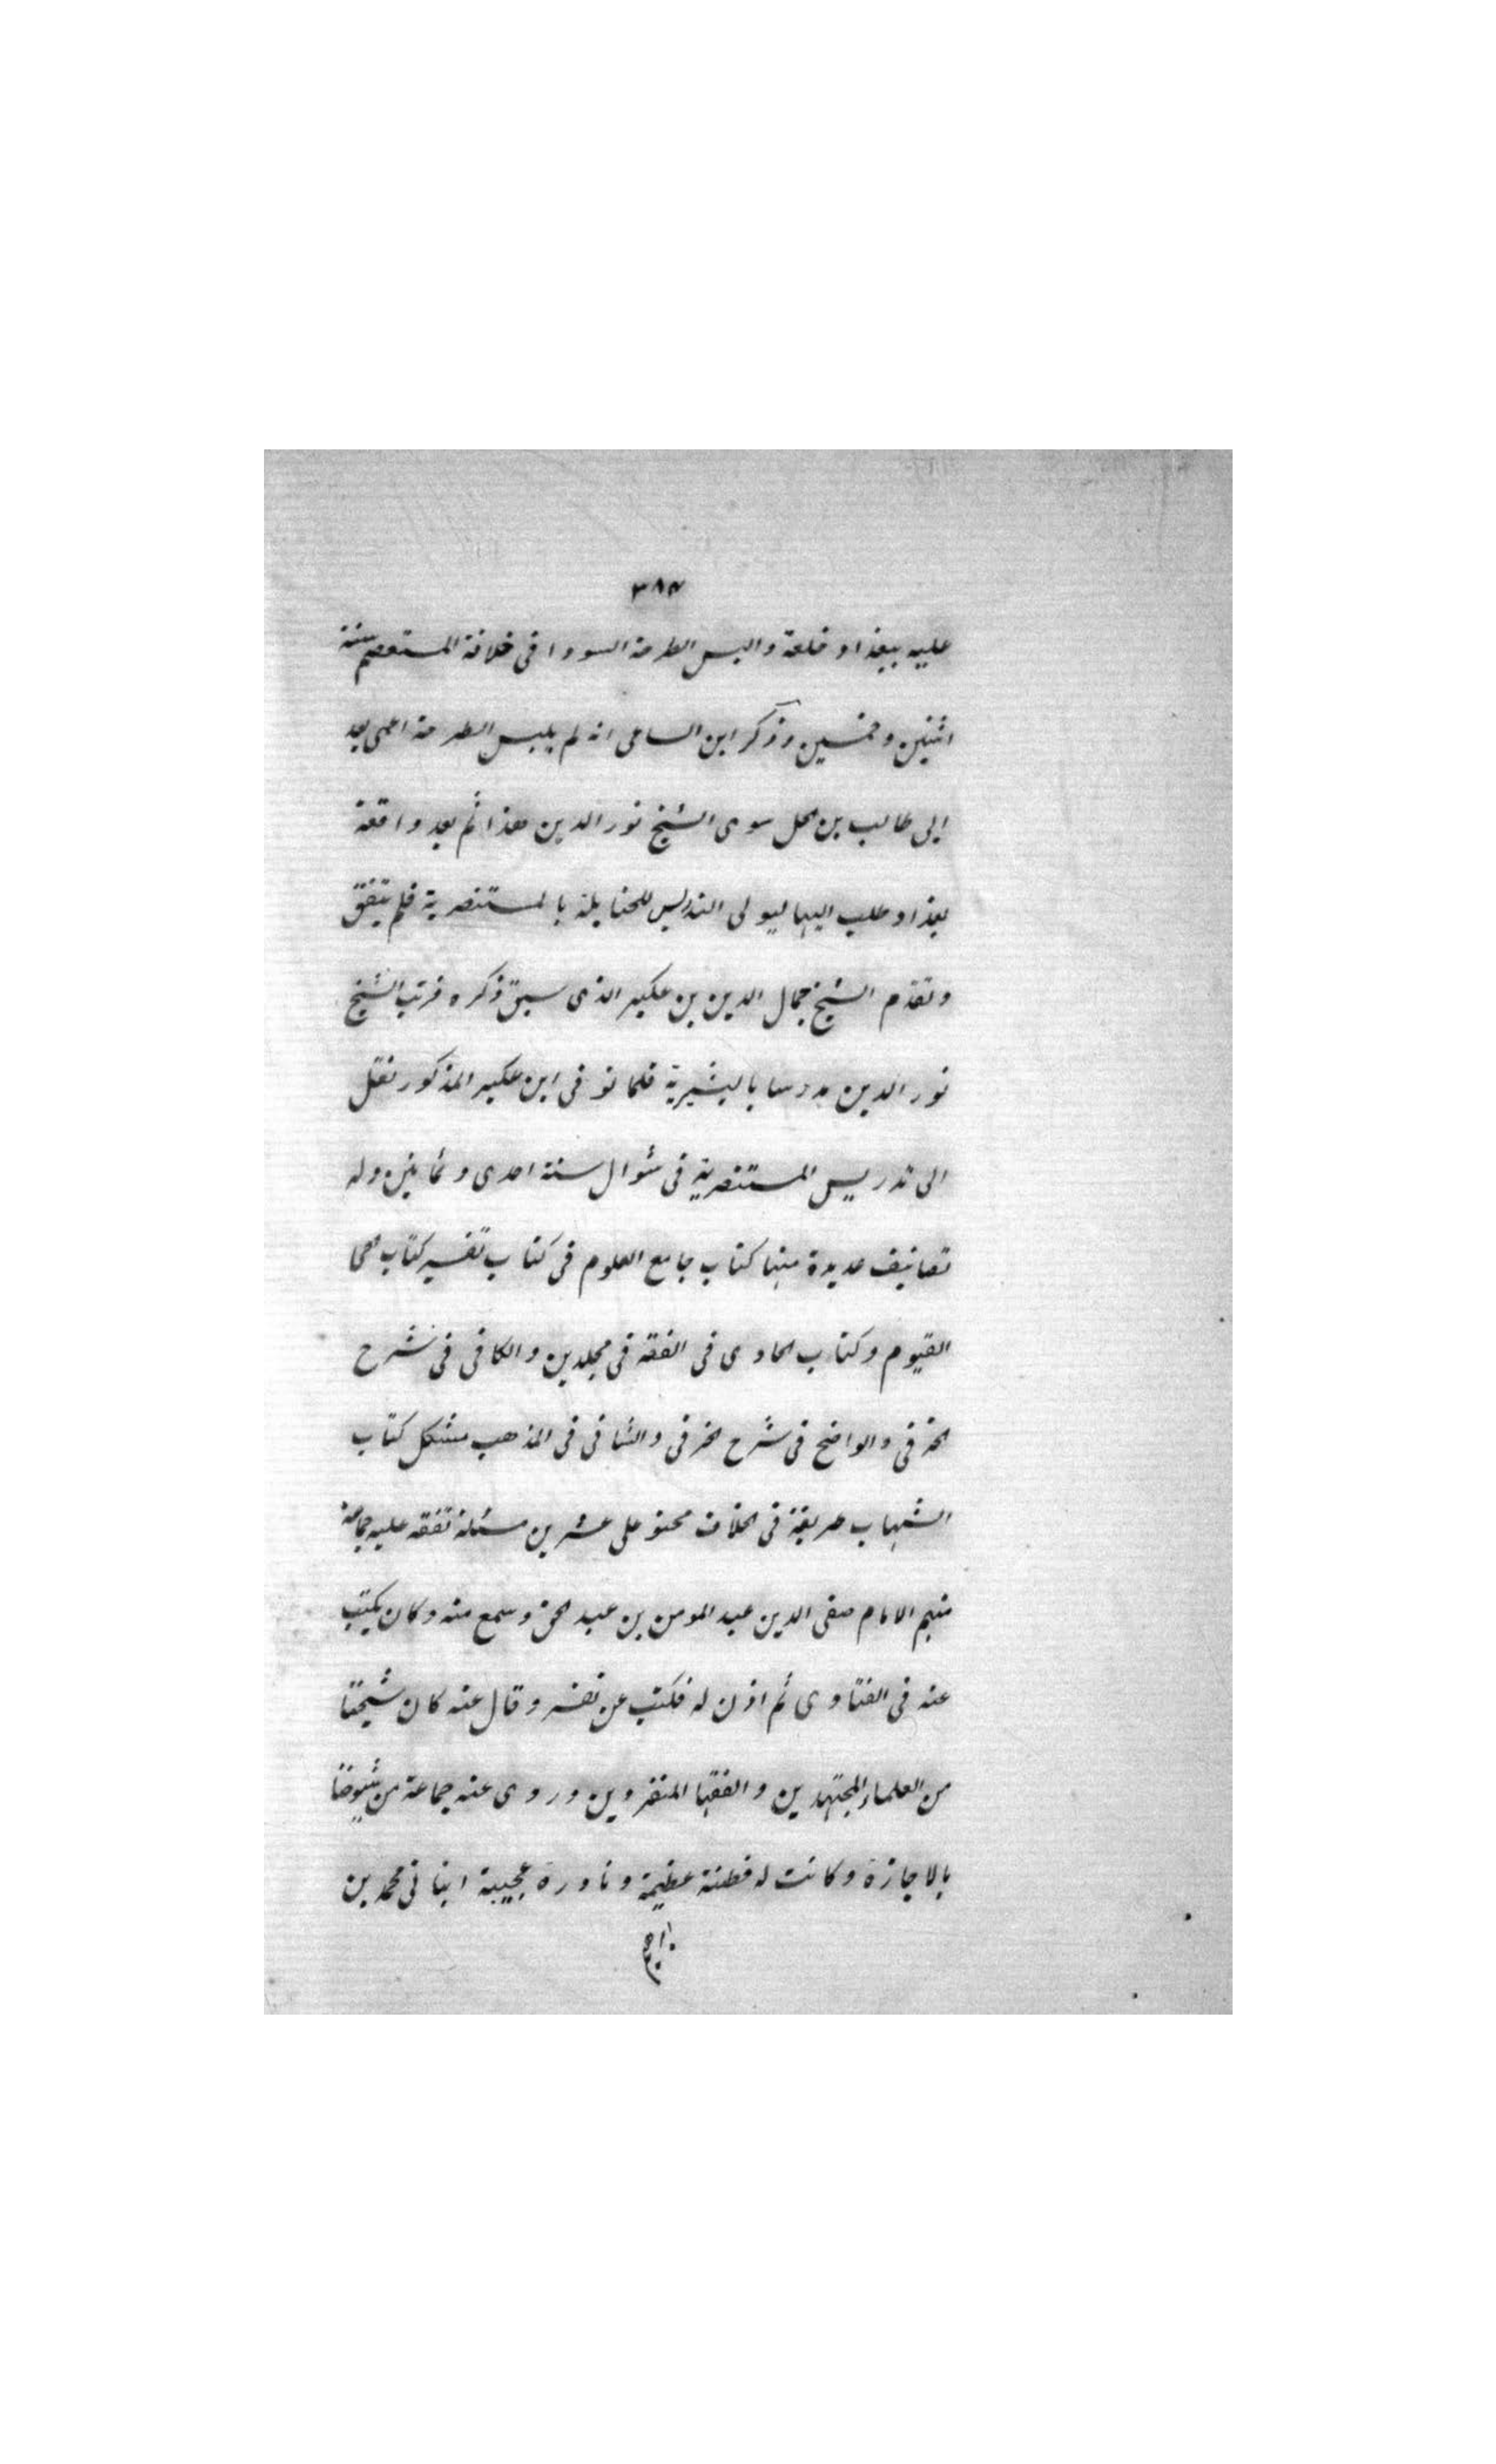 ٣٨٣
عليه ببغداد خلعة والبس الطرحة السودا فى خلافة المستعصم سنة
اثنين وخمسين وذكر ابن الساعى انه لم يلبس الطرحة اعمى بعد
ابى طالب بن سوى الشيخ نور الدين هذا ثم بعد واقعة
بغداد طلب اليها ليولى التدريس للحنابلة بالمستنصرية فلم يتفق
وتقدم الشيخ جمال الدين بن عكبر الذى سبق ذكره فرتب الشيخ
نور الدين مدرسا بالبشيرية فلما توفى ابن عكبر المذكور نقل
الى تدريس المستنصرية فى شوال سنة احدى وثمانين وله
تصانيف عديدة منها كتاب جامع العلوم فى كتاب تفسير كتاب الحى
القيوم وكتاب الحاوى فى الفقه فى مجلدين والكافى فى شرح
الخرقى والواضح فى شرح الخرقى والشافى فى المذهب مشكل كتاب
الشهاب طريقة فى الخلاف محتو على عشرين مسئلة تفقه عليه جماعة
منهم الامام صفى الدين عبد المومن بن عبد الحق وسمع منه وكان يكتب
عنه فى الفتاوى ثم اذن له فكتب عن نفسه وقال عنه كان شيخنا
من العلماء المجتهدين والفقها المنفردين وروى عنه جماعة من شيوخنا
بالاجازة وكانت له فطنة عظيمة ونادرة عجيبة انبانى محمد بن